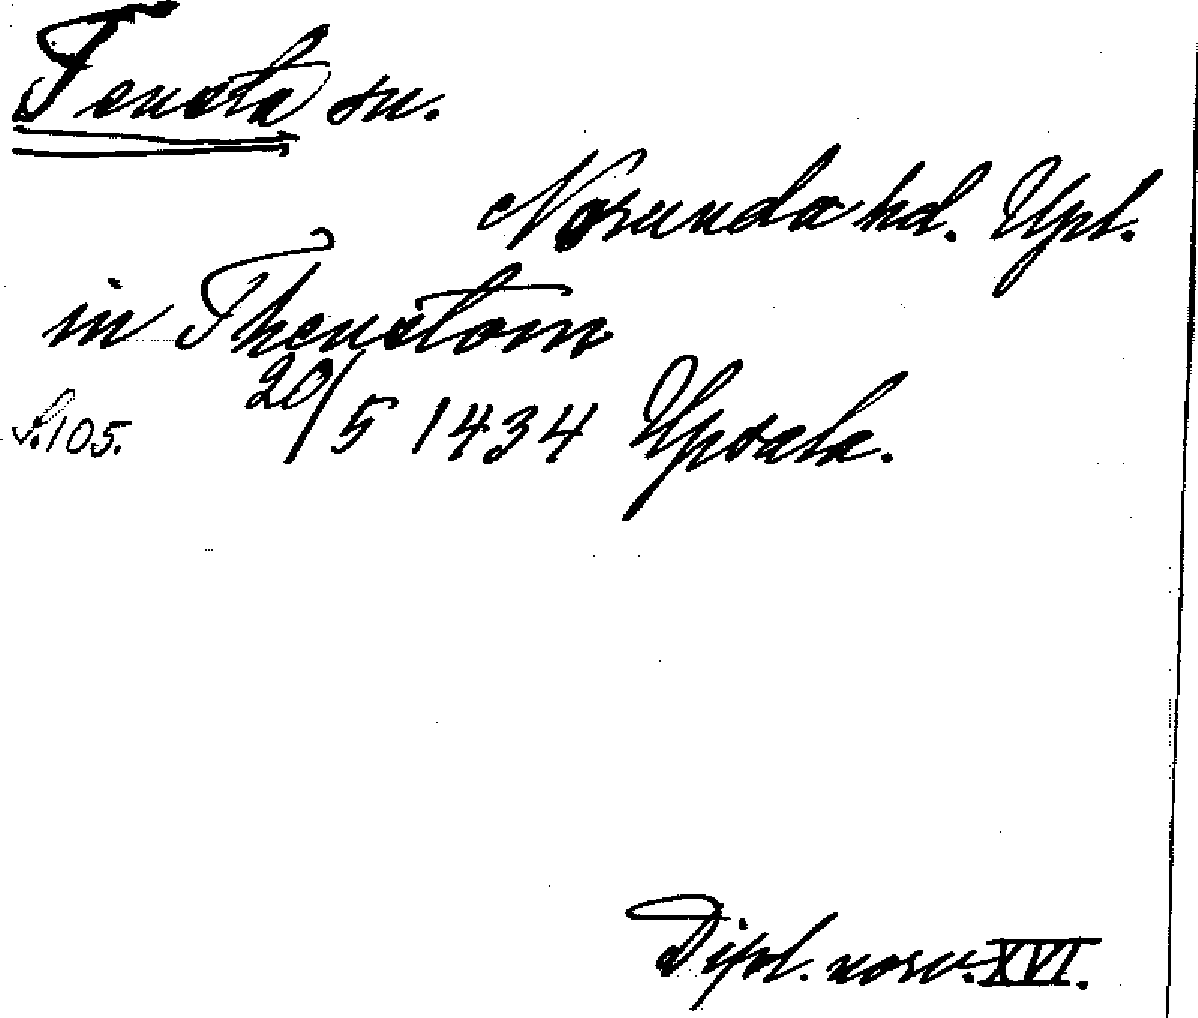 Tensta sn.
Norunda hd. Upl.
in Thenstom
20/5 1434 Upsala.
s. 105.
Dipl. norv. XVI.